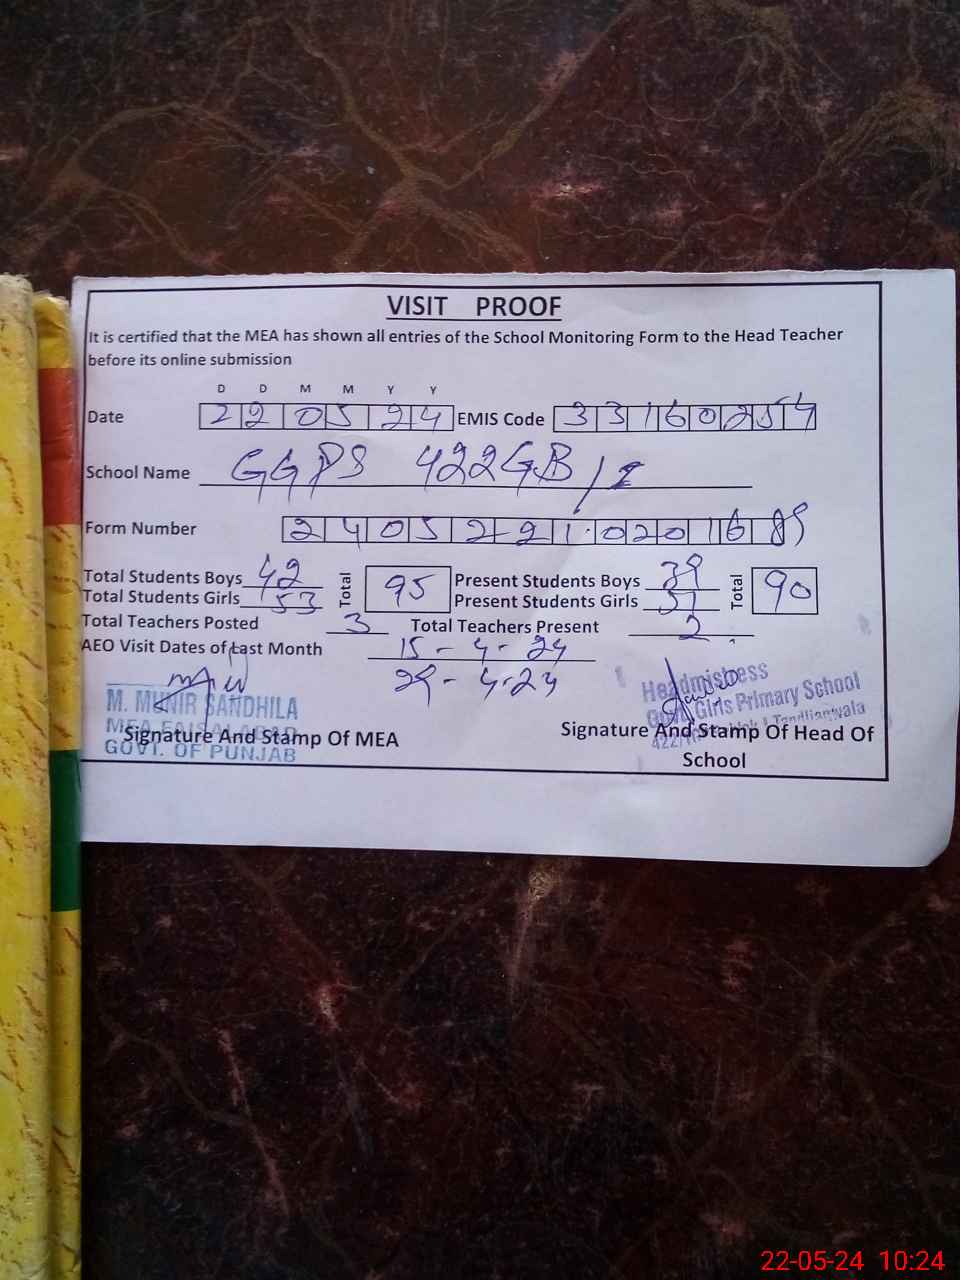 VISIT PROOF
It is certified that the MEA has shown all entries of the School Monitoring Form to the Head Teacher
before its online submission
D D M M Y Y
Date 22 05 24 EMIS Code 33160254
School Name GGPS 422GB/I
Form Number 2405221020168
Total Students Boys 42 Total 95 Present Students Boys 39 Total 90
Total Students Girls 53 Present Students Girls 51
Total Teachers Posted 3 Total Teachers Present 2
AEO Visit Dates of Last Month 15-4-24
29-4-24
M. MUNIR SANDHILA
MEA FAISALABAD
GOVT. OF PUNJAB
Signature And Stamp Of MEA
Headmistress
Govt. Girls Primary School
Tandlianwala
Signature And Stamp Of Head Of
School
22-05-24 10:24